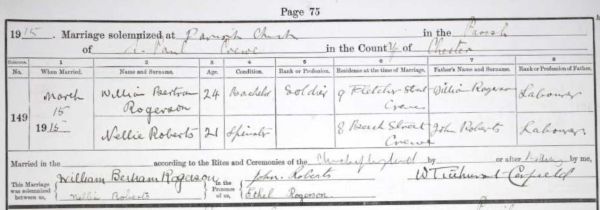 Page 75
1915. Marriage solemnized at Parish Church in the Parish
of St. Paul Crewe in the County of Chester
No. When Married. Name and Surname. Age. Condition. Rank or Profession. Residence at the time of Marriage. Father's Name and Surname. Rank or Profession of Father.
1 2 3 4 5 6 7 8
149 March 15 1915 William Bertram Rogerson 24 Bachelor Soldier 9 Fletcher Street Crewe William Rogerson Labourer
Nellie Roberts 21 Spinster 8 Beech Street Crewe John Roberts Labourer
Married in the according to the Rites and Ceremonies of the by or after by me,
This Marriage was solemnized between us, William Bertram Rogerson Nellie Roberts in the Presence of us, John Roberts Ethel Rogerson.